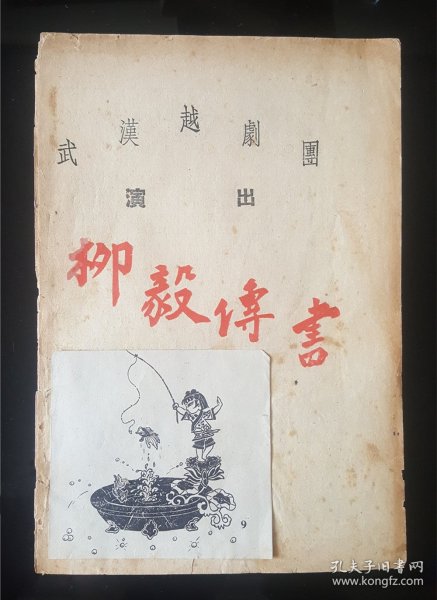 武漢越劇團
演出
柳毅傳書
9
孔夫子旧书网
www.kongfz.com